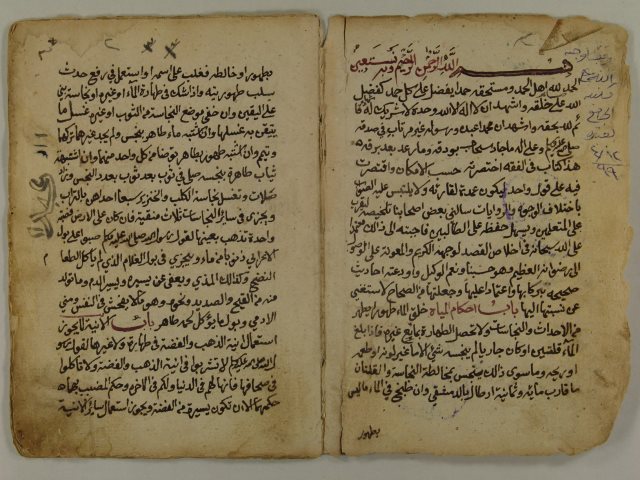 بسم الله الرحمن الرحيم وبه نستعين
الحمد لله اهل الحمد ومستحقه حمدا يفضل على كل حمد كفضل
الله على خلقه واشهد ان لا اله الا الله وحده لا شريك له قائم
لله بحقه واشهد ان محمدا عبده ورسوله غير مرتاب في صدقه
صلى الله عليه وسلم وعلى اله ما جاد سحاب بودقه وما رعد بعد برقه
هذا كتاب في الفقه اختصرته حسب الامكان واقتصرت
فيه على قول واحد ليكون عمدة لقارئه ولا يلتبس عليه الصواب
باختلاف الوجوه والروايات سالني بعض اصحابنا تلخيصه ليقرب
على المتعلمين ويسهل حفظه على الطالبين فاجبته الى ذلك معتمدا
على الله سبحانه في اخلاص القصد لوجهه الكريم والمعونة على الوصول
الى رضوانه العظيم فهو حسبنا ونعم الوكيل واودعته احاديث
صحيحة تبركا بها واعتمادا عليها وجعلتها من الصحاح لاستغني
عن نسبتها اليها باب احكام المياه خلق الماء طهورا يطهر
من الاحداث والنجاسات ولا تحصل الطهارة بمائع غيره فاذا بلغ
الماء قلتين او كان جاريا لم ينجسه شي الا ما غير لونه او طعمه
او ريحه وما سوى ذلك ينجس بمخالطة النجاسة والقلتان
ما قارب مائة وثمانية ارطال بالدمشقي وان طبخ في الماء ما ليس
بطهور
بطهور او خالطه فغلب على اسمه او استعمل في رفع حدث
سلب طهوريته واذا شك في طهارة الماء او غيره او نجاسته بنى
على اليقين وان خفي موضع النجاسة من الثوب او غيره غسل ما
يتيقن به غسلها وان اشتبه ماء طاهر بنجس ولم يجد غيرهما تركهما
وتيمم وان اشتبه طهور بطاهر توضا من كل واحد منهما وان اشتبهت
ثياب طاهرة بنجسه صلى في ثوب بعد ثوب بعدد النجس وزاد
صلاة وتغسل نجاسة الكلب والخنزير سبعا احداهن بالتراب
ويجزي في سائر النجاسات ثلاث منقية فان كان على الارض فصبة
واحدة تذهب بعينها لقول رسول الله صلى الله عليه وسلم صبوا على بول
الاعرابي ذنوبا من ماء ويجزي في بول الغلام الذي لم ياكل الطعام
النضح وكذلك المذي ويعفى عن يسيره ويسير الدم وما تولد
منه من القيح والصديد ونحوه وهو ما لا يفحش في النفس ومني
الادمي وبول ما يؤكل لحمه طاهر باب الانية لا يجوز
استعمال انية الذهب والفضة في طهارة ولا غيرها لقول رسول
الله صلى الله عليه وسلم لا تشربوا في انية الذهب والفضة ولا تاكلوا
في صحافها فانها لهم في الدنيا ولكم في الاخره وحكم المضبب بهما
حكمهما الا ان تكون يسيرة من الفضة ويجوز استعمال سائر الانية